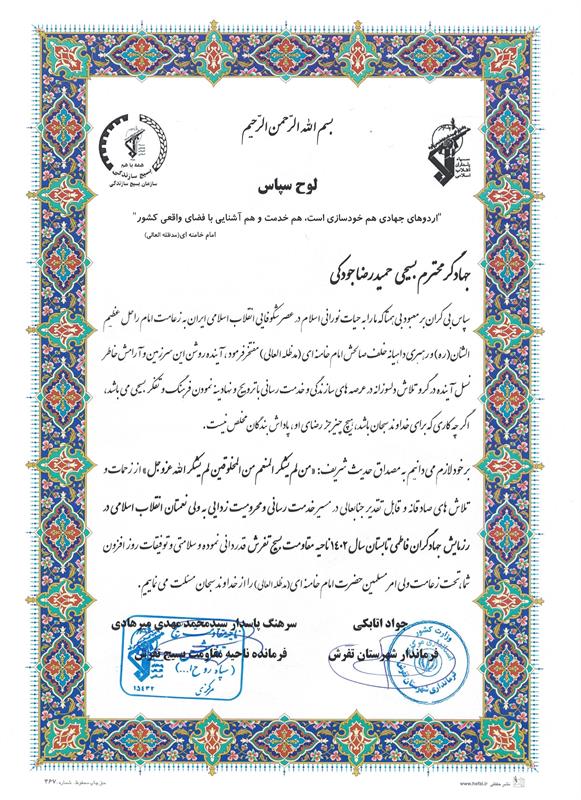 بسم الله الرّحمن الرّحیم
سپاه
پاسداران
انقلاب
اسلامی
همه با هم
بسیج سازندگی
سازمان بسیج سازندگی
لوح سپاس
"اردوهای جهادی هم خودسازی است، هم خدمت و هم آشنایی با فضای واقعی کشور"
امام خامنه ای(مدظله العالی)
جهادگر محترم بسیجی حمیدرضا جودکی
سپاس بی کران بر معبود بی همتا که ما را به حیات نورانی اسلام در عصر شکوفایی انقلاب اسلامی ایران به زعامت امام راحل عظیم
الشان(ره) و رهبری داهیانه خلف صالحش امام خامنه ای(مدظله العالی) مفتخر فرمود، آینده روشن این سرزمین و آرامش خاطر
نسل آینده در گرو تلاش دلسوزانه در عرصه های سازندگی و خدمت رسانی با ترویج و نهادینه نمودن فرهنگ و تفکر بسیجی می باشد،
اگر چه کاری که برای خداوند سبحان باشد، هیچ چیز جز رضای او، پاداش بندگان مخلص نیست.
بر خود لازم می دانیم به مصداق حدیث شریف: «من لم یشکر المنعم من المخلوقین لم یشکر الله عزوجل» از زحمات و
تلاش های صادقانه و قابل تقدیر جنابعالی در مسیر خدمت رسانی و محرومیت زدایی به ولی نعمتان انقلاب اسلامی در
رزمایش جهادگران فاطمی تابستان سال ۱۴۰۲ ناحیه مقاومت بسیج تفرش قدردانی نموده و سلامتی و توفیقات روز افزون
شما، تحت زعامت ولی امر مسلمین حضرت امام خامنه ای(مدظله العالی) را از خداوند سبحان مسئلت می نماییم.
جواد اتابکی
فرماندار شهرستان تفرش
وزارت کشور
فرمانداری شهرستان تفرش
سرهنگ پاسدار سیدمحمد مهدی میرهادی
فرمانده ناحیه مقاومت بسیج تفرش
(سپاه روح ا...)
مرکزی
۱۵۴۳۲
حق چاپ محفوظ. شماره ۳۶۷۰
www.hafzi.ir